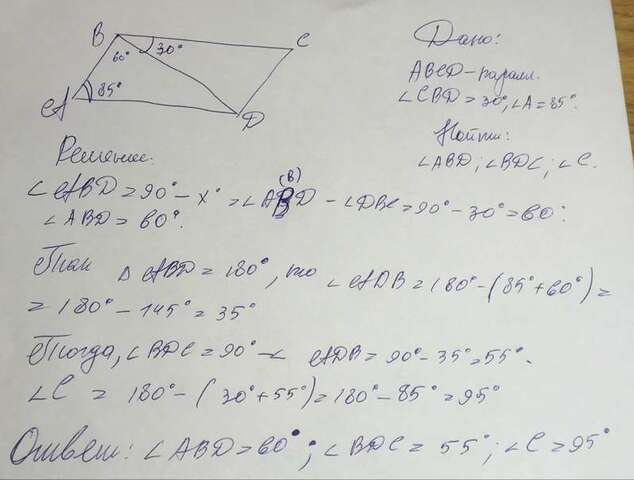 B 60° 30° C
A 85° D
Дано:
ABCD – паралл.
∠CBD = 30°, ∠A = 85°.
Найти:
∠ABD; ∠BDC; ∠C.
Решение.
(B)
∠ABD = 90° – x° = ∠ABD – ∠DBC = 90° – 30° = 60°.
∠ABD = 60°.
Так Δ ABD = 180°, то ∠ADB = 180° – (85° + 60°) =
= 180° – 145° = 35°
Тогда, ∠BDC = 90° – ∠ ADB = 90° – 35° = 55°.
∠C = 180° – (30° + 55°) = 180° – 85° = 95°
Ответ: ∠ABD = 60°; ∠BDC = 55°; ∠C = 95°